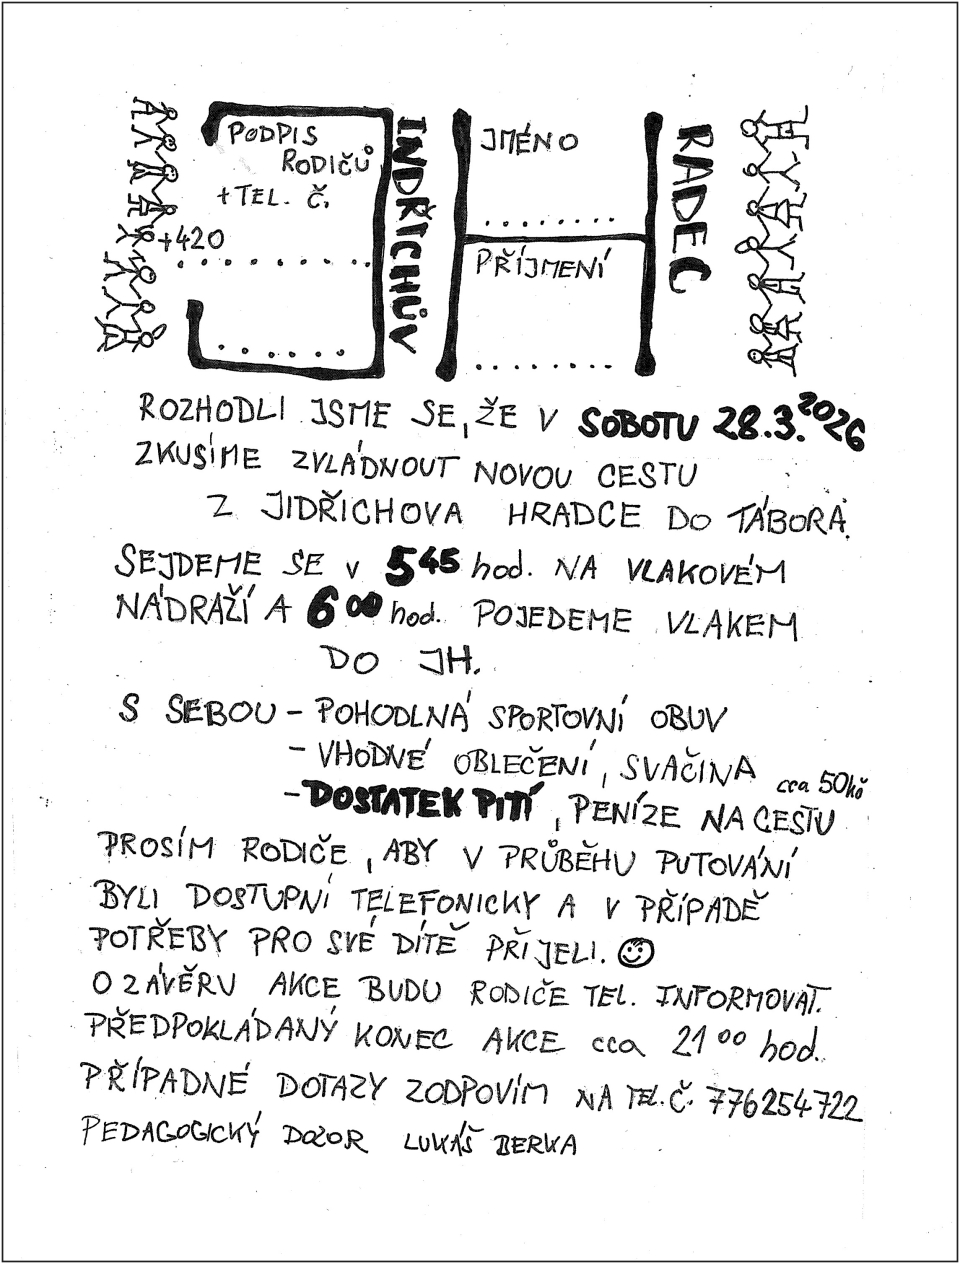 PODPIS
RODIČŮ
+TEL. Č.
+420
INDŘICHŮV
JMÉNO
PŘÍJMENÍ
RADEC
ROZHODLI JSME SE, ŽE V SOBOTU 28.3.2026
ZKUSÍME ZVLÁDNOUT NOVOU CESTU
Z JIDŘICHOVA HRADCE DO TÁBORA.
SEJDEME SE V 5 45 hod. NA VLAKOVÉM
NÁDRAŽÍ A 6 00 hod. POJEDEME VLAKEM
DO JH.
S SEBOU - POHODLNÁ SPORTOVNÍ OBUV
- VHODNÉ OBLEČENÍ, SVAČINA
- DOSTATEK PITÍ, PENÍZE NA CESTU cca 50kč
PROSÍM RODIČE, ABY V PRŮBĚHU PUTOVÁNÍ
BYLI DOSTUPNÍ TELEFONICKY A V PŘÍPADĚ
POTŘEBY PRO SVÉ DÍTĚ PŘIJELI.
O ZÁVĚRU AKCE BUDU RODIČE TEL. INFORMOVAT.
PŘEDPOKLÁDANÝ KONEC AKCE cca 21 00 hod.
PŘÍPADNÉ DOTAZY ZODPOVÍM NA TEL.Č. 776254722
PEDAGOGICKÝ DOZOR LUKÁŠ BERKA